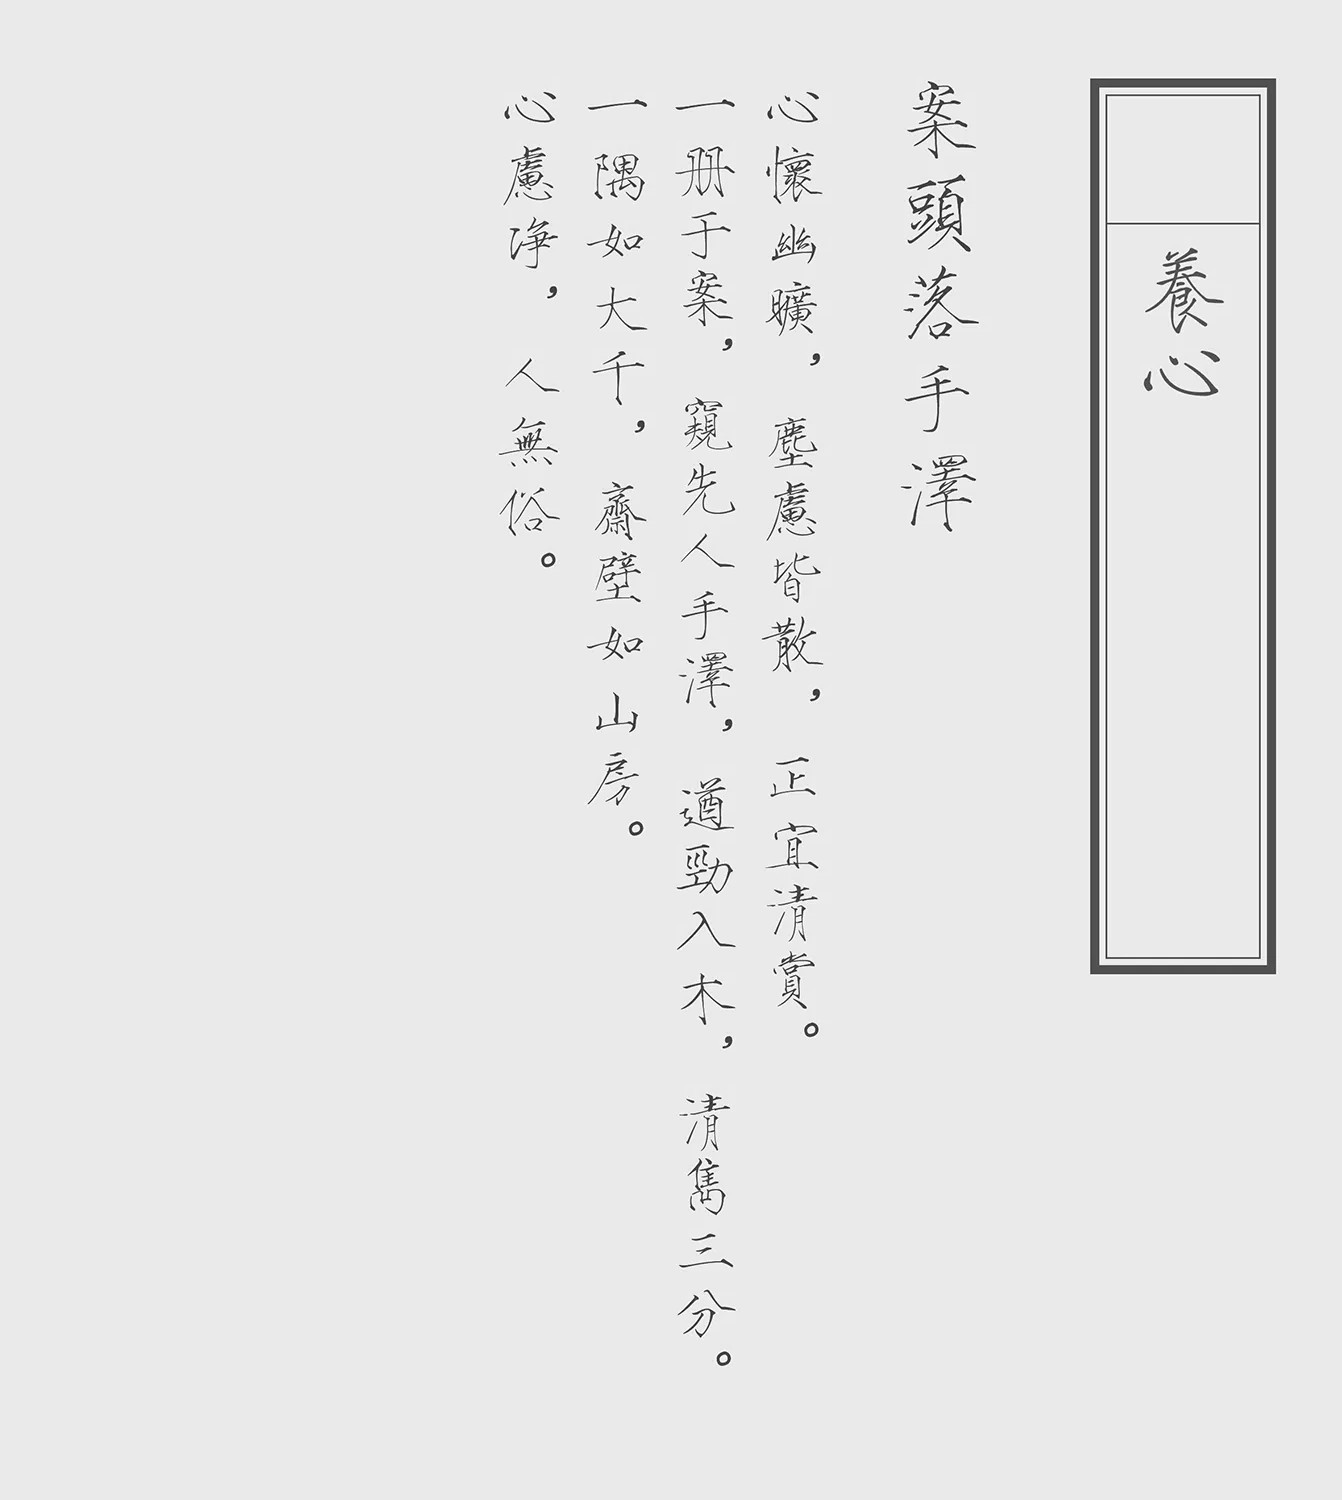 養心
案頭落手澤
心懷幽曠，塵慮皆散，正宜清賞。
一册于案，窺先人手澤，遒勁入木，清雋三分。
一隅如大千，齋壁如山房。
心慮净，人無俗。